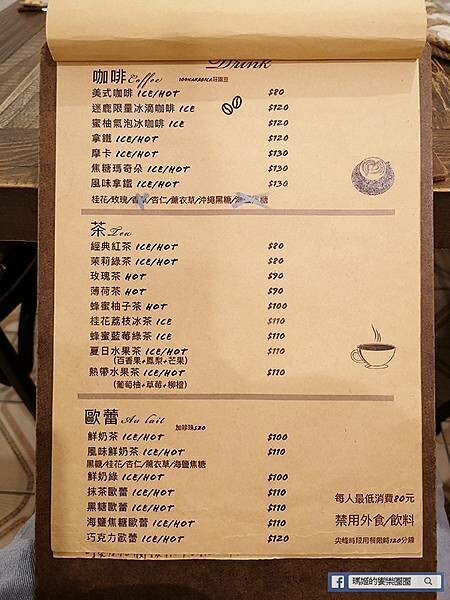 Drink
咖啡 Coffee 100%ARABICA好園豆
美式咖啡 ICE/HOT $80
迷鹿限量冰滴咖啡 ICE $120
蜜柚氣泡冰咖啡 ICE $120
拿鐵 ICE/HOT $120
摩卡 ICE/HOT $130
焦糖瑪奇朵 ICE/HOT $130
風味拿鐵 ICE/HOT $130
桂花/玫瑰/杏仁/薰衣草/沖繩黑糖/
茶 Tea
經典紅茶 ICE/HOT $80
茉莉綠茶 ICE/HOT $80
玫瑰茶 HOT $90
薄荷茶 HOT $90
蜂蜜柚子茶 HOT $100
桂花荔枝冰茶 ICE $110
蜂蜜藍莓綠茶 ICE $110
夏日水果茶 ICE/HOT $110
(百香果+鳳梨+芒果)
熱帶水果茶 ICE/HOT $110
(葡萄柚+草莓+柳橙)
歐蕾 Au lait 加珍珠$20
鮮奶茶 ICE/HOT $100
風味鮮奶茶 ICE/HOT $110
黑糖/桂花/杏仁/薰衣草/海鹽焦糖
鮮奶綠 ICE/HOT $100
抹茶歐蕾 ICE/HOT $110
黑糖歐蕾 ICE/HOT $110
海鹽焦糖歐蕾 ICE/HOT $110
巧克力歐蕾 ICE/HOT $120
每人最低消費80元
禁用外食/飲料
尖峰時段用餐限時120分鐘
瑪姬的饗樂圈圈